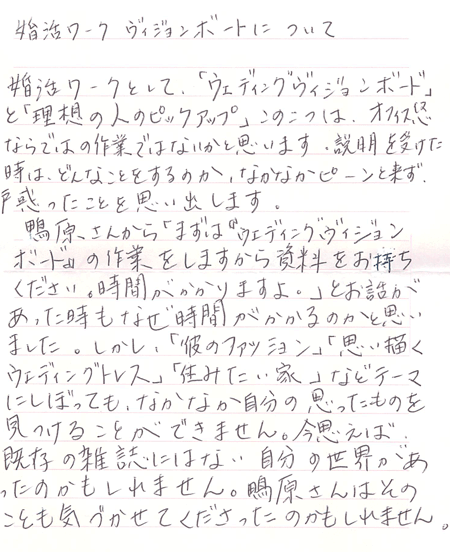 婚活ワーク ヴィジョンボートについて
婚活ワークとして、「ウェディングヴィジョンボード」
と「理想の人のピックアップ」この二つは、オフィス
ならではの作業ではないかと思います。説明を受けた
時は、どんなことをするのか、なかなかピーンと来ず、
戸惑ったことを思い出します。
鴨原さんから「まずは『ウェディングヴィジョン
ボード』の作業をしますから資料をお持ち
ください。時間がかかりますよ。」とお話が
あった時もなぜ時間がかかるのかと思い
ました。しかし、「彼のファッション」「思い描く
ウェディングドレス」「住みたい家」などテーマ
にしぼっても、なかなか自分の思ったものを
見つけることができません。今思えば、
既存の雑誌にはない自分の世界があ
ったのかもしれません。鴨原さんはその
ことも気づかせてくださったのかもしれません。